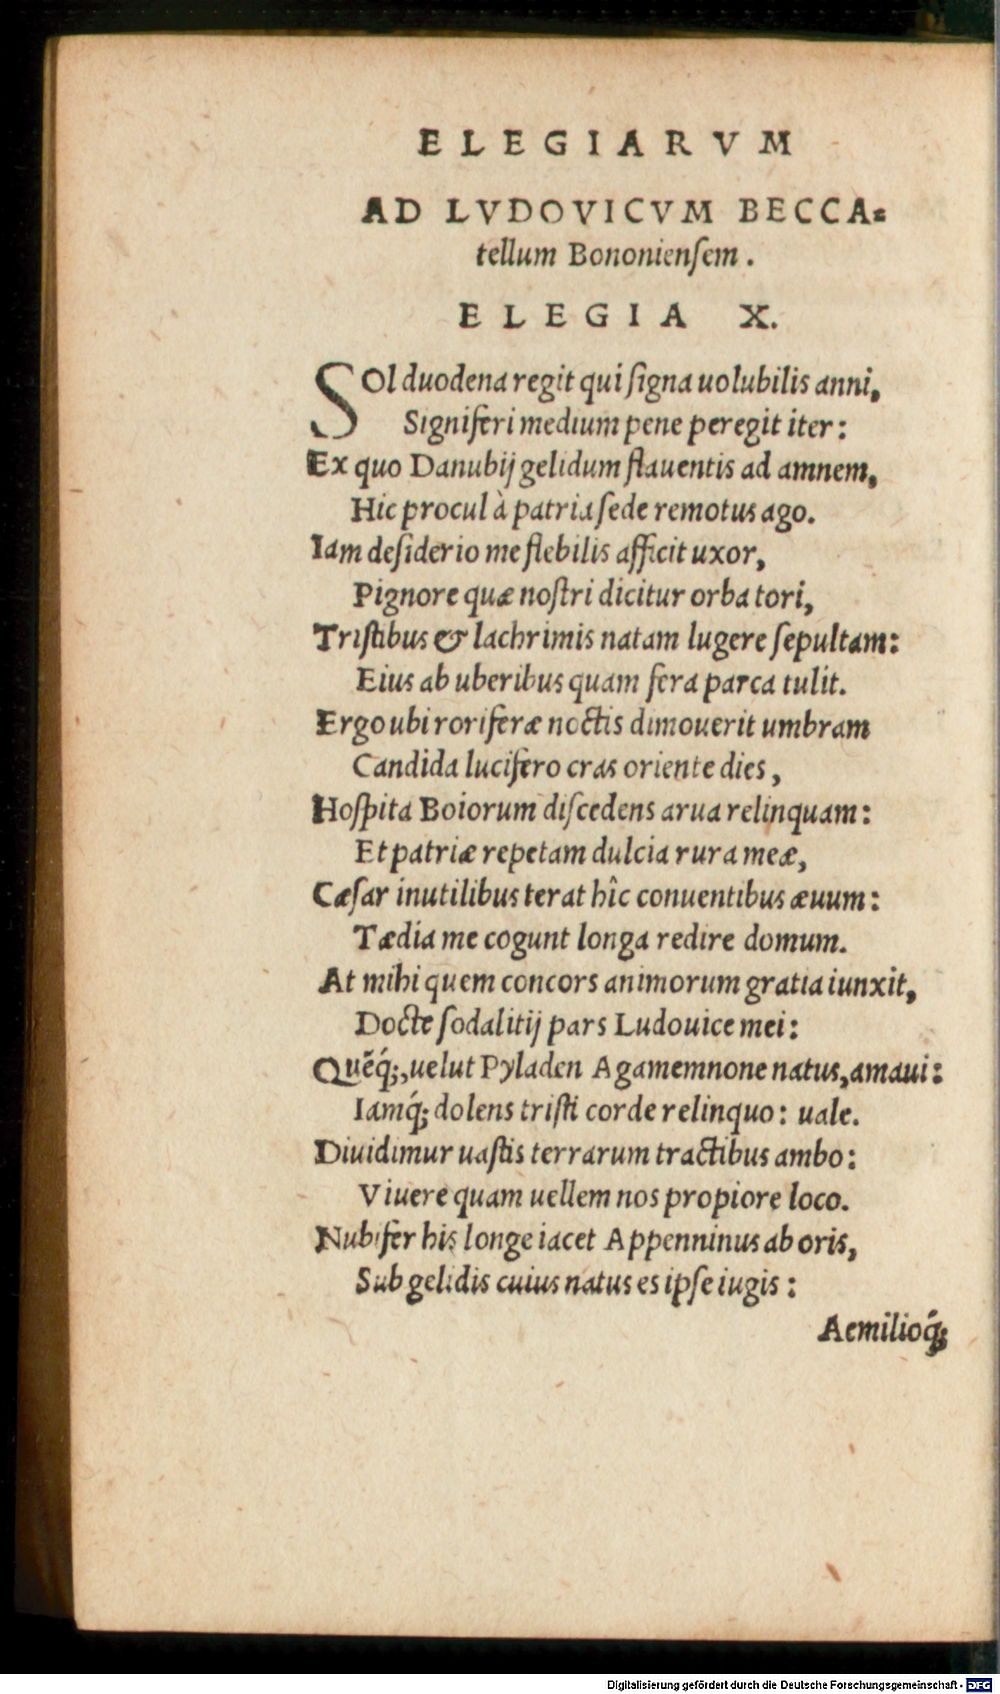 ELEGIARVM
AD LVDOVICVM BECCA-
tellum Bononienſem.
ELEGIA X.
SOl duodena regit qui ſigna uolubilis anni,
Signiferi medium pene peregit iter:
Ex quo Danubij gelidum flauentis ad amnem,
Hic procul à patria ſede remotus ago.
Iam deſiderio me flebilis afficit uxor,
Pignore quæ noſtri dicitur orba tori,
Triſtibus & lachrimis natam lugere ſepultam:
Eius ab uberibus quam fera parca tulit.
Ergo ubi roriferæ noctis dimouerit umbram
Candida lucifero cras oriente dies,
Hoſpita Boiorum diſcedens arua relinquam:
Et patriæ repetam dulcia rura meæ,
Cæſar inutilibus terat hîc conuentibus æuum:
Tædia me cogunt longa redire domum.
At mihi quem concors animorum gratia iunxit,
Docte ſodalitij pars Ludouice mei:
Quẽq́;, uelut Pyladen Agamemnone natus, amaui:
Iamq́; dolens triſti corde relinquo: uale.
Diuidimur uaſtis terrarum tractibus ambo:
Viuere quam uellem nos propiore loco.
Nubifer his longe iacet Appenninus ab oris,
Sub gelidis cuius natus es ipſe iugis:
Aemilioq́;
Digitalisierung gefördert durch die Deutsche Forschungsgemeinschaft - DFG